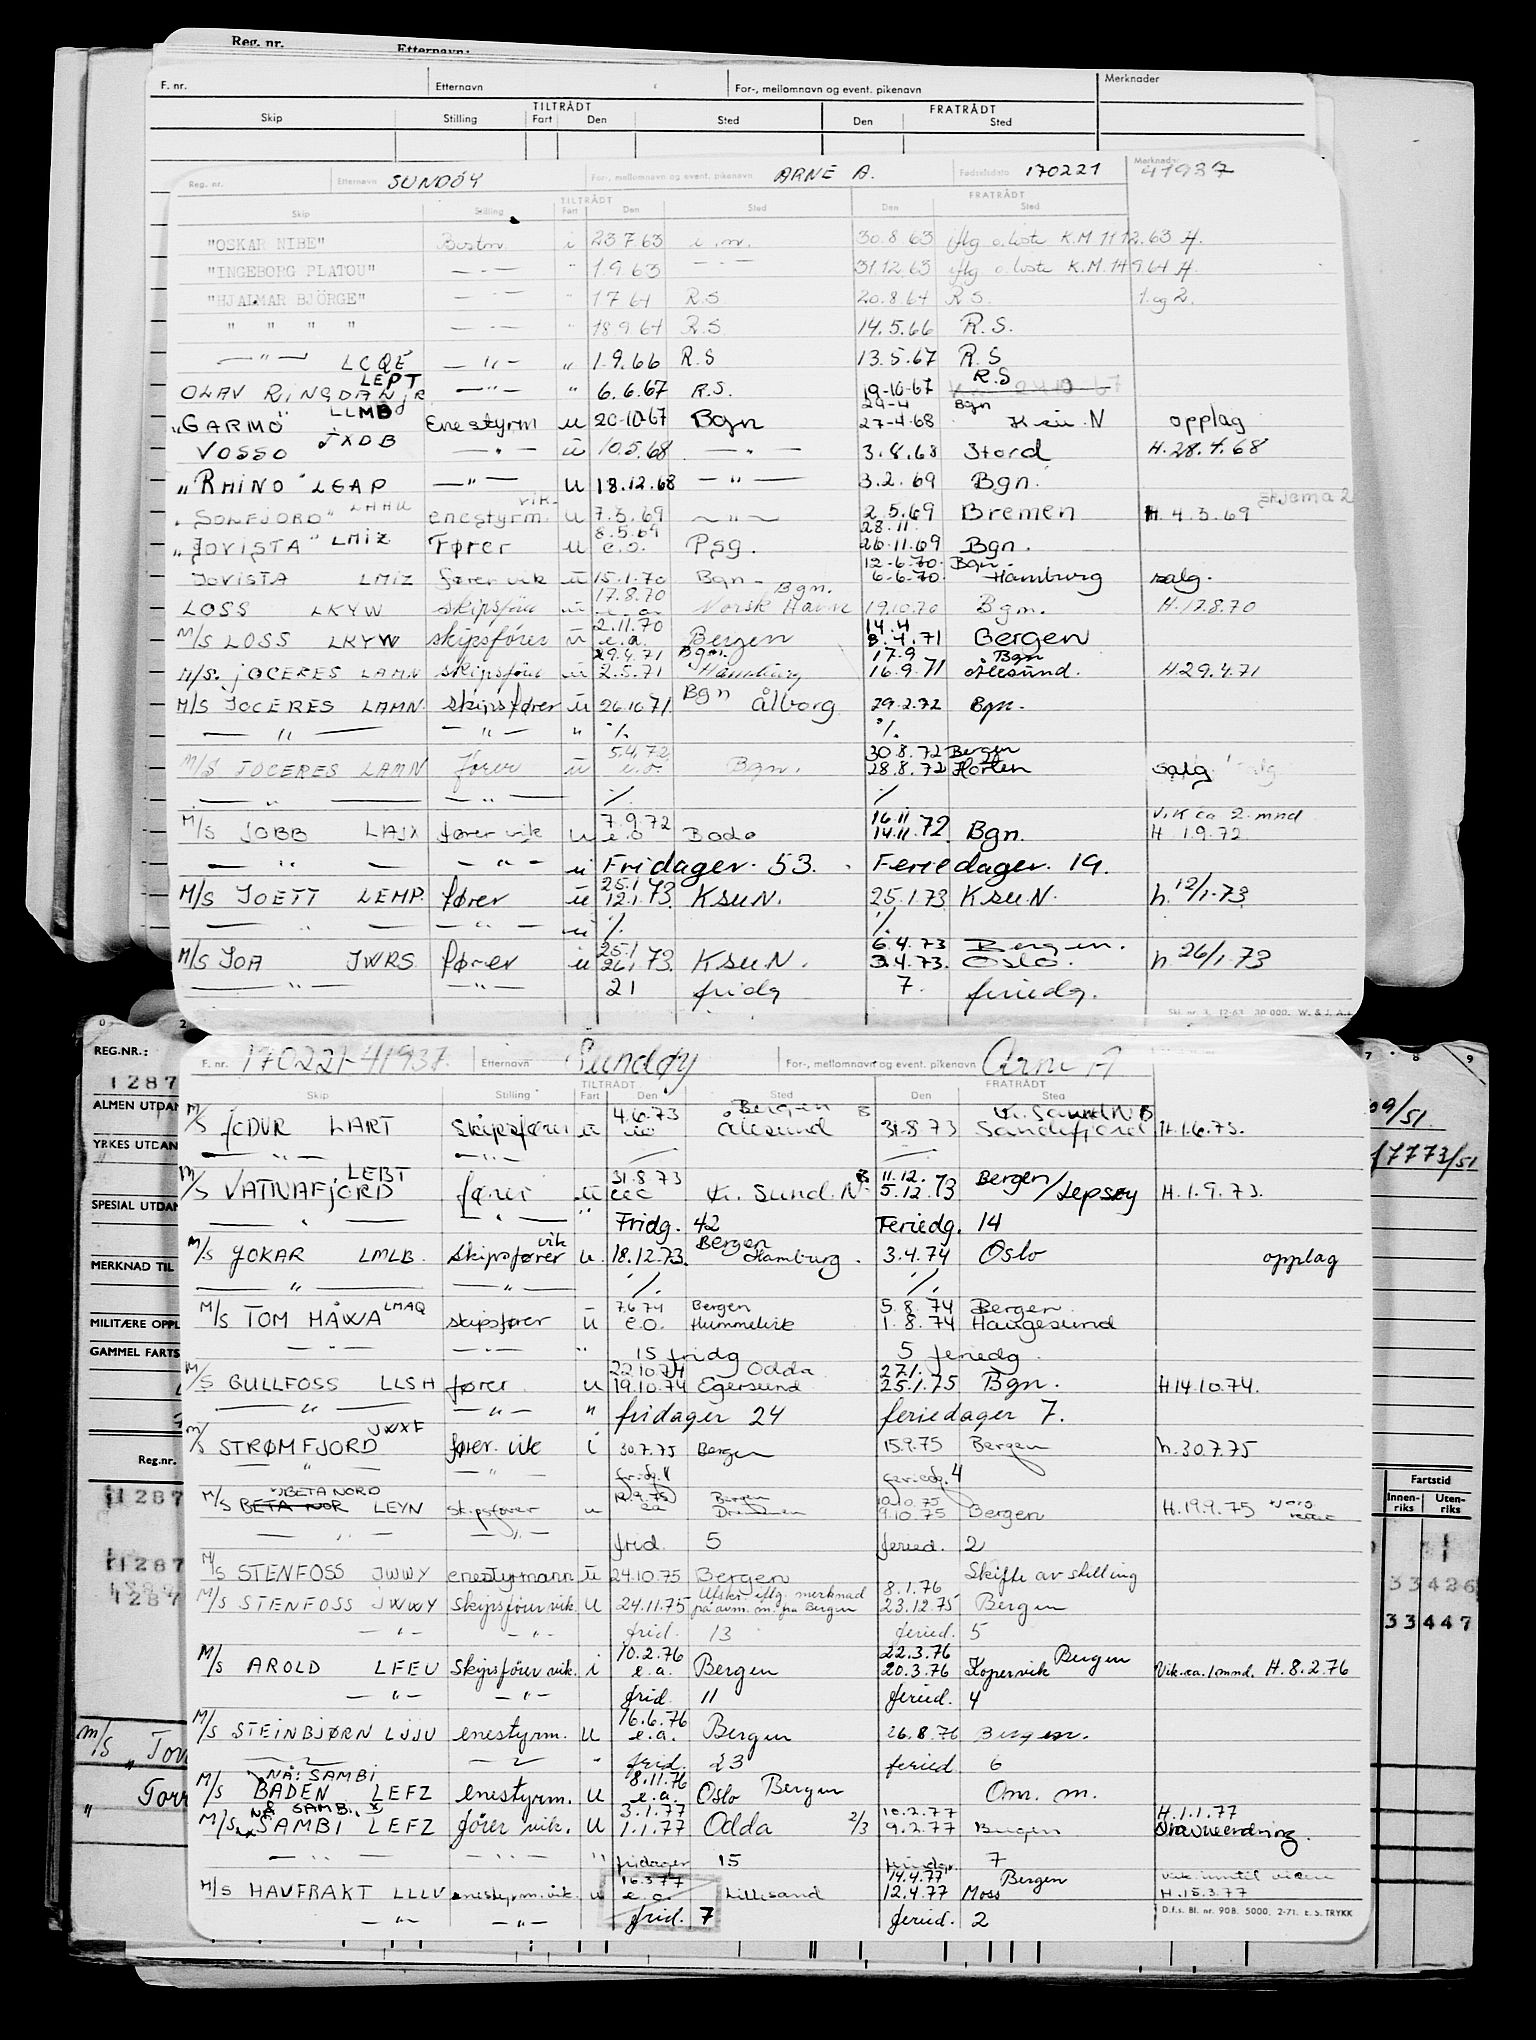 Reg. nr. Etternavn:
F. nr. Etternavn For-, mellomnavn og event. pikenavn Merknader
TILTRÅDT FRATRÅDT
Skip Stilling Fart Den Sted Den Sted
Reg. nr. Etternavn SUNDÖY For-, mellomnavn og event. pikenavn ARNE A. Fødselsdato 170221 Merknader 41937
TILTRÅDT FRATRÅDT
Skip Stilling Fart Den Sted Den Sted
"OSKAR NIBE" Bestm. i 23.7.63 i. m. 30.8.63 iflg o.liste K.M. 12.63 H.
"INGEBORG PLATOU" — " — " 1.9.63 — " — 31.12.63 iflg o.liste K.M. 9.64 H.
"HJALMAR BJÖRGE" — " — " 1 7 64 R.S 20.8.64 R S. 1. og 2.
" " " " — " — " 18 9 64 R.S 14.5.66 R.S.
— " — LCQE — " — " 1.9.66 R.S 13.5.67 R.S
LEPT R.S
OLAV RINGDAL JR — " — " 6.6.67 R.S. 19-10-67
LLMB 29-4 Bgn
"GARMO" Enestyrm u 20-10-67 Bgn 27-4-68 Ksu. N opplag
VOSSO JXDB — " — u 10.5.68 — " — 3.8.68 Stord H. 28.4.68
"RHINO" LEAP — " — u 18.12.68 — " — 3.2.69 Bgn.
vik. skjema 2
"SOLFJORD" LAHU enestyrm. u 7.3.69 — " — 2.5.69 Bremen H 4.3.69
8.5.69 28.11
"JOVISTA" LMIZ Fører u e.o. Psg. 26.11.69 Bgn.
12-6-70 Bgn.
JOVISTA LMIZ fører vik u 15.1.70 Bgn 6-6-70 Hamburg salg.
17.8.70 Bgn.
LOSS LKYW skipsfører u e.o. Norsk Havn 19.10.70 Bgn. H.12.8.70
2.11.70 14.4
M/S LOSS LKYW skipsfører u e.a. Bergen 8.4.71 Bergen
29.4.71 Bgn. 17.9 Bgn
M/S. JOCERES LAMN skipsfører u 2.5.71 Hamburg 16.9.71 Ålesund. H 29.4.71
M/S JOCERES LAMN skipsfører u 26.10.71 Bgn Ålborg 29.2.72 Bgn.
— " — — " — " ./. ./.
5.4.72 30.8.72 Bergen
M/S JOCERES LAMN fører u e.o. Bgn. 28.8.72 Horten salg
— " — — " — ./. ./.
7.9.72 16.11 Vik ca 2 mnd
M/S JOBB LAJX fører vik u e.o Bodø 14.11.72 Bgn. H 1.9.72
— " — — " — u Fridager 53. Feriedager 19.
25.1
M/S JOETT LEMP. fører u 12.1.73. KSUN. 25.1.73 KSUN. h. 12/1-73
— " — — " — u ./. ./.
25.1 6.4.73 Bergen.
M/S JOA JWRS. fører u 26.1.73. KSUN. 3.4.73. OSLO. h. 26/1-73
— " — — " — 21 fridg 7. feriedg.
Skj. nr. 3. 12-63. 30 000. W. & J. A.s
F. nr. 170221-41937. Etternavn Sundøy For-, mellomnavn og event. pikenavn Arne A
TILTRÅDT FRATRÅDT
Skip Stilling Fart Den Sted Den Sted
4.6.73 Bergen B Kr. Sund N B
M/S JODUR LART Skipsfører u e.o Ålesund 31.8.73 Sandefjord H.1.6.73.
— " —
LEBT 31.8.73 B 11.12.
M/S VATNAFJORD fører u e.o Kr. Sund. N 5.12.73 Bergen/Lepsøy H. 1.9.73.
— " — — " — " Fridg. 42 Feriedg. 14
vik Bergen
M/S JOKAR LMLB. skipsfører u. 18.12.73. Hamburg. 3.4.74 Oslo opplag
— " — — " — ./. ./.
7.6.74 Bergen 5.8.74 Bergen
M/S TOM HÅWA LMAQ skipsfører u e.o. Hummelvik 1.8.74 Haugesund
— " — — " — " 15 fridg 5 feriedg.
22.10.74 Odda 27.1.
M/S GULLFOSS LLSH fører u 19.10.74 Egersund 25.1.75 Bgn. H 14.10.74.
— " — — " — " fridager 24 feriedager 7.
M/S STRØMFJORD JWXF fører vik i 30.7.75 Bergen 15.9.75 Bergen h. 30.7.75
— " — — " — fridg. 8 feriedg. 4
BETA NORD 19.9.75 Bergen 10.10.75
M/S BETA NOR LEYN skipsfører u ea 9.10.75 Bergen H.19.9.75
— " — — " — frid. 5 feried. 2
M/S STENFOSS JWWY enestyrmann u 24.10.75 Bergen Skifte av stilling
Utskr. iflg. merknad 8.1.76
M/S STENFOSS JWWY Skipsfører vik. u 24.11.75 på avm. m. fra Bergen 23.12.75 Bergen
— " — — " — frid. 13 feried. 5
10.2.76 22.3.76 Bergen
M/S AROLD LFEU Skipsfører vik. i e.a. Bergen 20.3.76 Kopervik Vik. ca. 1 mnd. H. 8.2.76
— " — — " — frid. 11 feried. 4
16.6.76
M/S STEINBJØRN LJJU enestyrm. u e.a. Bergen 26.8.76 Bergen.
— " — — " — " frid. 23 feried. 6
NÅ: SAMBI 8.11.76
M/S BADEN LEFZ enestyrm. u e.a. Oslo Bergen Om. m.
3.1.77 10.2.77 H.1.1.77
M/S SAMBI LEFZ fører vik. u 1.1.77 Odda 2/3 9.2.77 Bergen
— " — — " — " fridager 15 7
16.3.77 14.4.77 Bergen vik. inntil videre
M/S HAVFRAKT LLLV enestyrm. vik. u e.o. Lillesand 12.4.77 Moss H.15.3.77
— " — — " — frid. 7 feried. 2
D.f.s. Bl. nr. 90B. 5000. 2-71. E.S. TRYKK
REG.NR.:
1287
ALMEN UTDAN
YRKES UTDAN
SPESIAL UTDAN
MERKNAD TIL
MILITÆRE OPPL
GAMMEL FARTS
Reg.nr.
1287
1287
1287
M/S "Torr
" Torr
7 8 9
09/51.
7773/51
Fartstid
Innen-riks Uten-riks
33426
33447